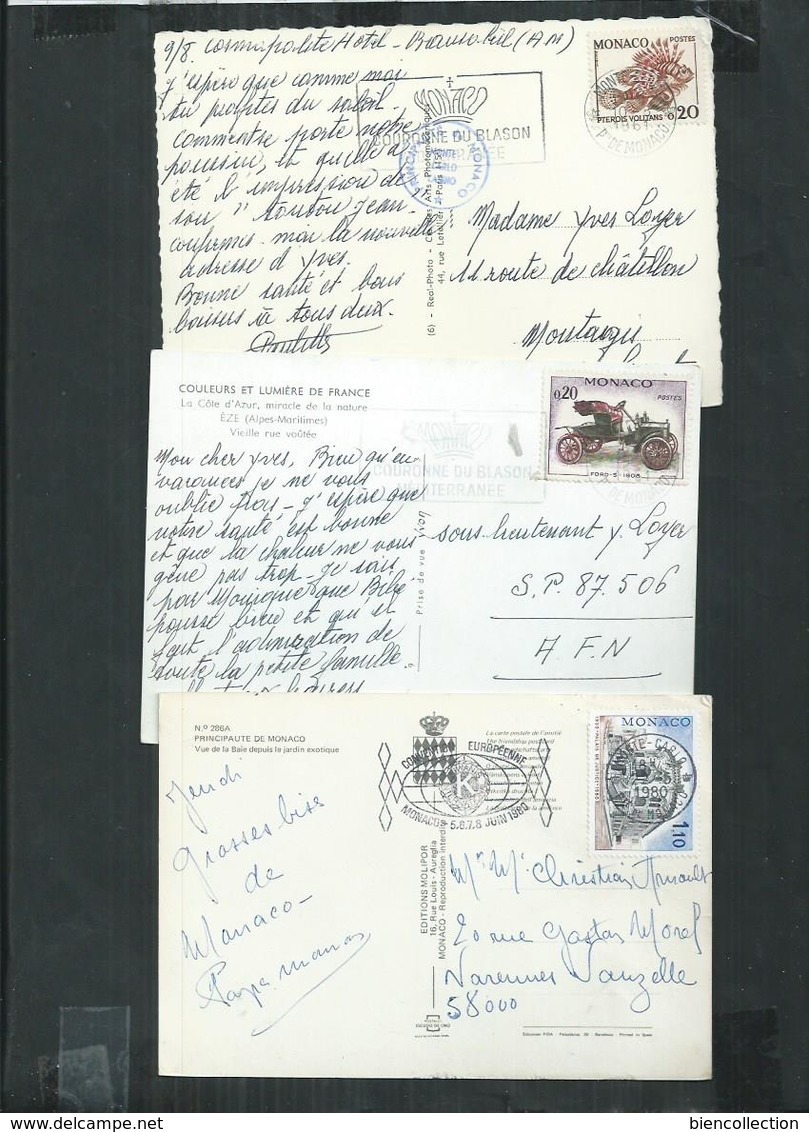 9/8. Cosmopolite Hotel - Beausoleil (A M)
j'espère que comme moi
tu profites du soleil
comment se porte notre
poussin, et quelle a
été l'impression de
son "tonton Jean"
confirmes-moi la nouvelle
adresse d'Yves.
Bonne santé et bons
baisers à tous deux.
Paulette
MONACO
COURONNE DU BLASON
PRINCIPAUTE DE MONACO
(6) - Real-Photo - 44, rue Letellier - Paris (15e)
MONACO POSTES
PTEROIS VOLITANS 0,20
Pte DE MONACO
Madame Yves Loyer
11 route de châtillon
Montargis
COULEURS ET LUMIÈRE DE FRANCE
La Côte d'Azur, miracle de la nature
ÈZE (Alpes-Maritimes)
Vieille rue voûtée
Mon cher Yves, Bien qu'en
vacances je ne vous
oublie pas - j'espère que
votre santé est bonne
et que la chaleur ne vous
gêne pas trop - je sais
par Monique que Bébé
pousse bien et qu'il
fait l'admiration de
toute la petite famille.
COURONNE DU BLASON
MÉDITERRANÉE
Prise de vue Yvon
0,20 MONACO
POSTES
FORD-S-1908
DE MONACO
sous lieutenant y. Loyer
S.P. 87.506
A.F.N
N.º 286A
PRINCIPAUTE DE MONACO
Vue de la Baie depuis le jardin exotique
Jeudi
grosses bises
de
Monaco -
Papy maman
La carte postale de l'amitié
The friendship postcard
CONVENTION EUROPÉENNE
MONACO 5.6.7.8 JUIN 1980
EDITIONS MOLIPOR
16, Rue Louis - Aureglia
MONACO - Reproduction interdite
MONACO
1.10
MONTE-CARLO
1980
Mr Me Christian Arnault
20 rue Gaston Morel
Varennes Vauzelle
58000
bien​collection